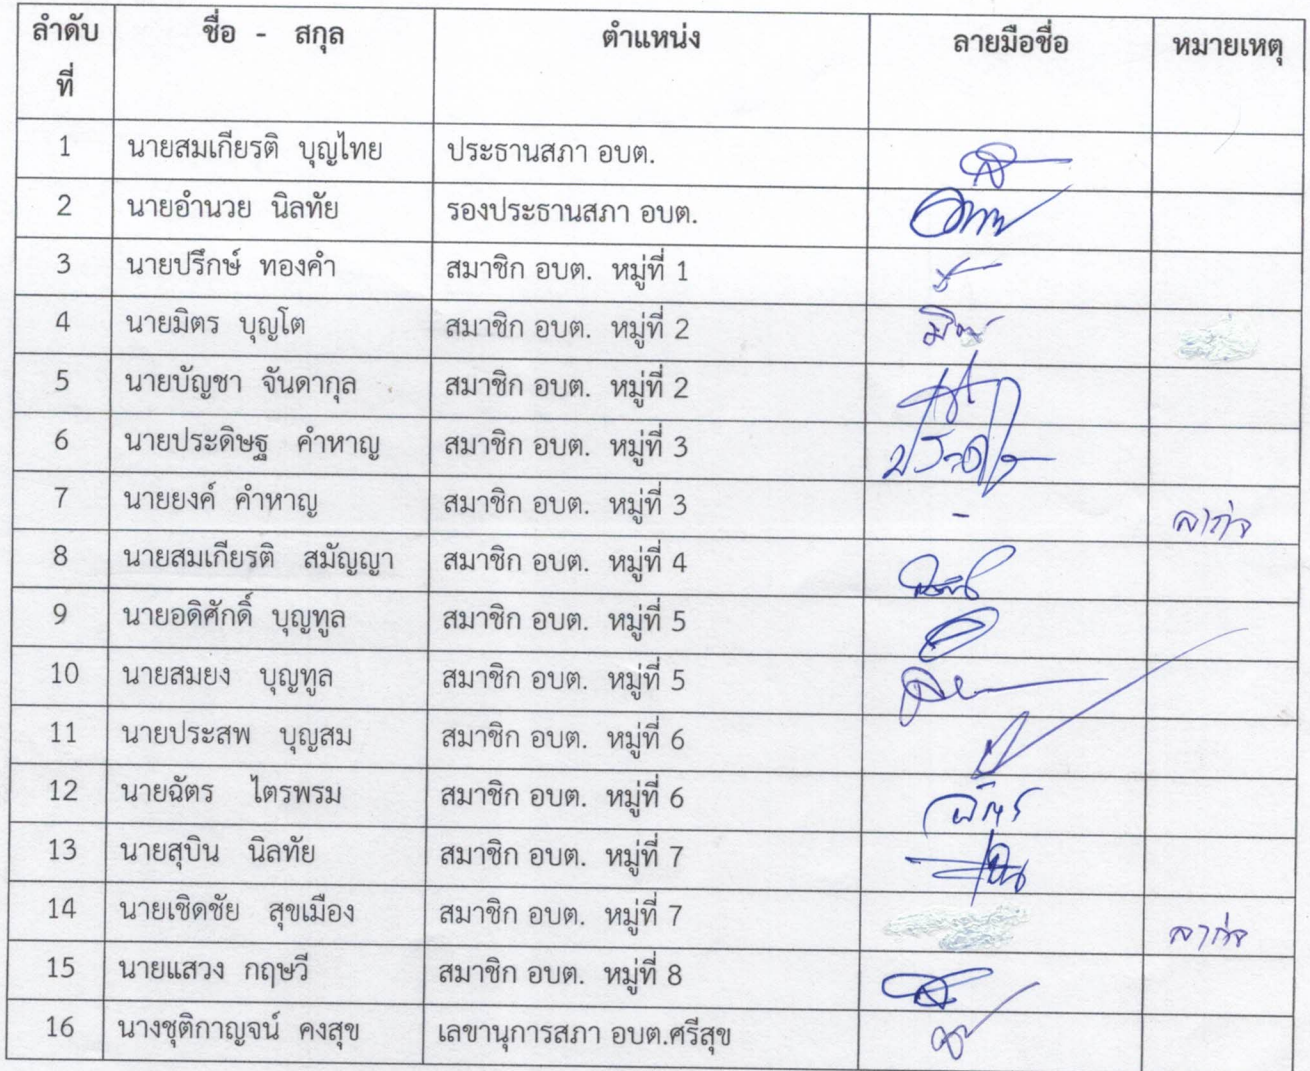 ลำดับ ชื่อ - สกุล ตำแหน่ง ลายมือชื่อ หมายเหตุ
ที่
1 นายสมเกียรติ บุญไทย ประธานสภา อบต.
2 นายอำนวย นิลทัย รองประธานสภา อบต.
3 นายปรึกษ์ ทองคำ สมาชิก อบต. หมู่ที่ 1
4 นายมิตร บุญโต สมาชิก อบต. หมู่ที่ 2
5 นายบัญชา จันดากุล สมาชิก อบต. หมู่ที่ 2
6 นายประดิษฐ คำหาญ สมาชิก อบต. หมู่ที่ 3
7 นายยงค์ คำหาญ สมาชิก อบต. หมู่ที่ 3 - ลากิจ
8 นายสมเกียรติ สมัญญา สมาชิก อบต. หมู่ที่ 4
9 นายอดิศักดิ์ บุญทูล สมาชิก อบต. หมู่ที่ 5
10 นายสมยง บุญทูล สมาชิก อบต. หมู่ที่ 5
11 นายประสพ บุญสม สมาชิก อบต. หมู่ที่ 6
12 นายฉัตร ไตรพรม สมาชิก อบต. หมู่ที่ 6
13 นายสุบิน นิลทัย สมาชิก อบต. หมู่ที่ 7
14 นายเชิดชัย สุขเมือง สมาชิก อบต. หมู่ที่ 7 ลากิจ
15 นายแสวง กฤษวี สมาชิก อบต. หมู่ที่ 8
16 นางชุติกาญจน์ คงสุข เลขานุการสภา อบต.ศรีสุข